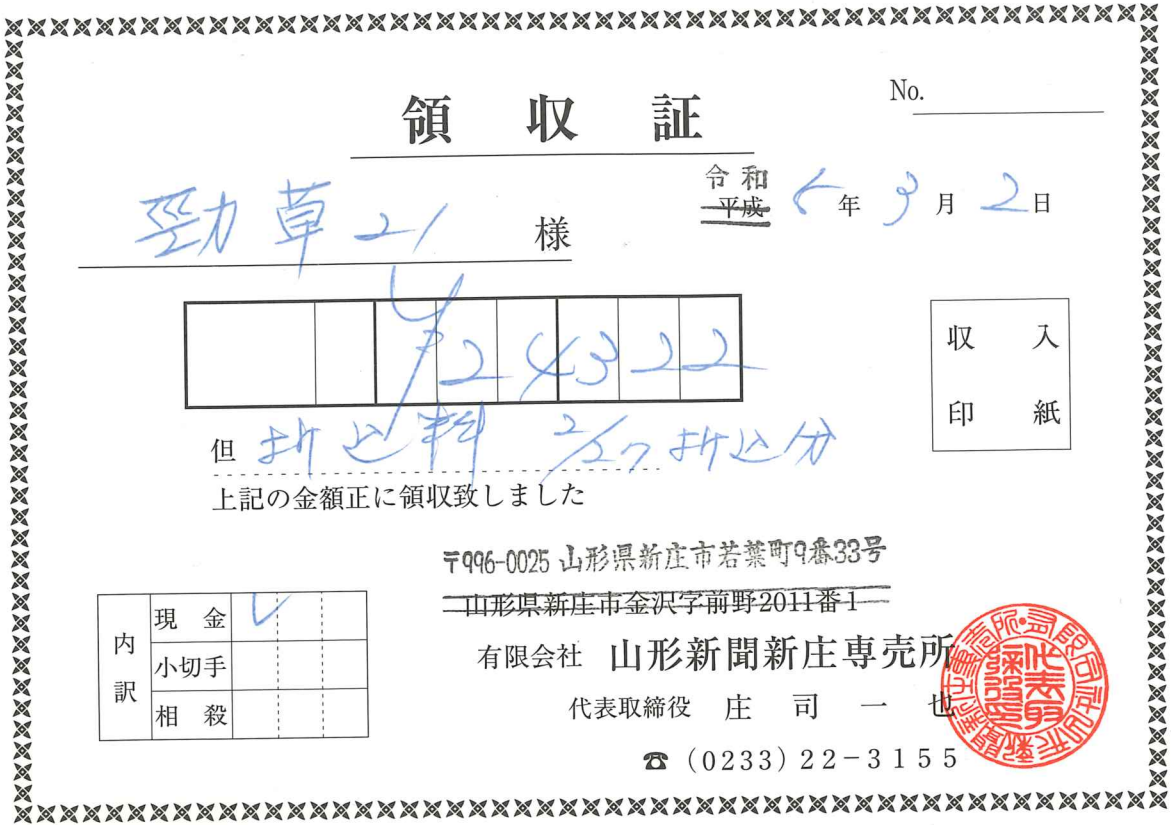 No.
領収証
勁草21 様
令和
平成 5年3月2日
¥24322
収入
印紙
但 折込料 2/27折込分
上記の金額正に領収致しました
〒996-0025 山形県新庄市若葉町9番33号
山形県新庄市金沢字前野2011番1
有限会社 山形新聞新庄専売所
代表取締役 庄司一也
☎(0233)22-3155
内訳
現金 ✓
小切手
相殺